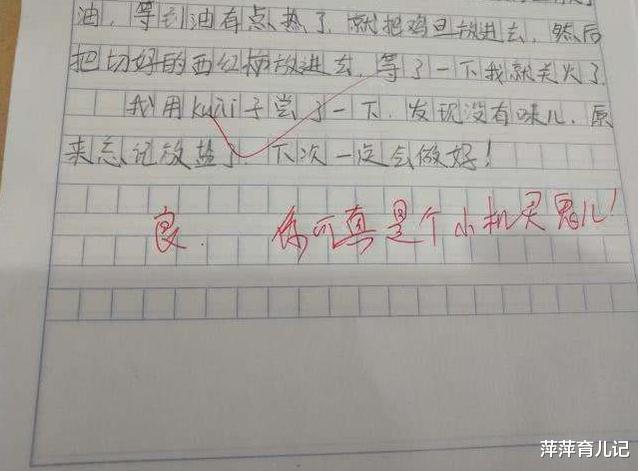 油，等到油有点热了，就把鸡旦放进去，然后
把切好的西红柿放进去，等了一下我就关火了。
我用kuài子尝了一下，发现没有味儿，原
来忘记放盐了，下次一定会做好！
良. 你可真是个小机灵鬼儿！
萍萍育儿记